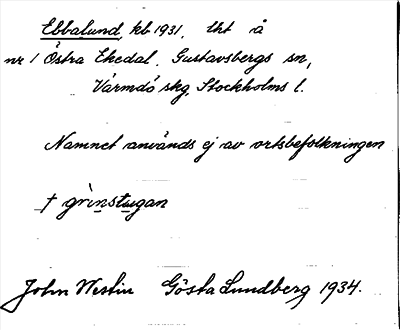 Ebbalund, kb 1931, lht å
nr 1 Östra Ekedal, Gustavsbergs sn,
Värmdö skg, Stockholms l.
Namnet används ej av ortsbefolkningen
† grìnstugan
John Westin Gösta Lundberg 1934.